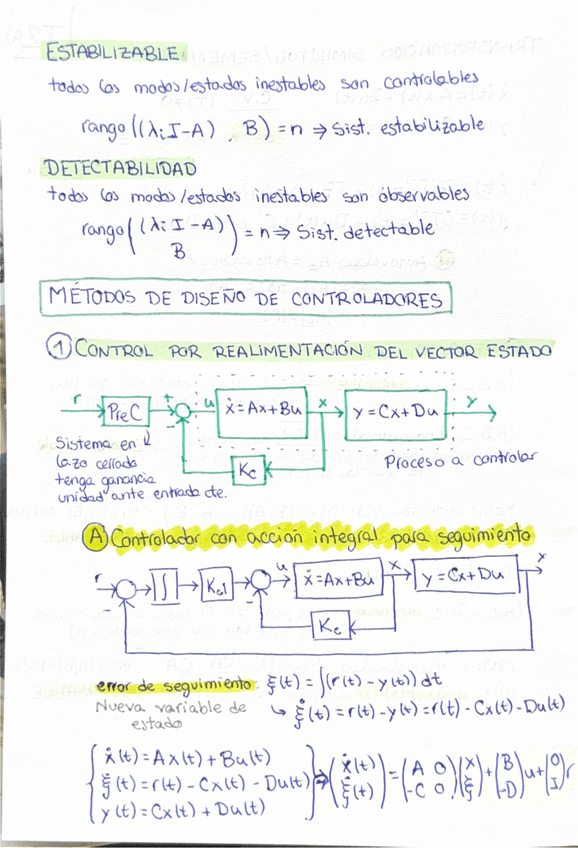 ESTABILIZABLE:
todos los modos/estados inestables son controlables
rango((λiI-A) , B) = n ⇒ Sist. estabilizable
DETECTABILIDAD
todos los modos/estados inestables son observables
rango((λiI-A) B) = n ⇒ Sist. detectable
MÉTODOS DE DISEÑO DE CONTROLADORES
① CONTROL POR REALIMENTACIÓN DEL VECTOR ESTADO
r PreC + u ẋ=Ax+Bu x y=Cx+Du y
Kc
Sistema en
lazo cerrado
tenga ganancia
unidad ante entrada cte.
Proceso a controlar
Ⓐ Controlador con acción integral para seguimiento
r - ∫ KcI u ẋ=Ax+Bu x y=Cx+Du x
Kc
error de seguimiento: ξ(t) = ∫(r(t) - y(t)) dt
Nueva variable de
estado
↳ ξ̇(t) = r(t) - y(t) = r(t) - Cx(t) - Du(t)
ẋ(t) = Ax(t) + Bu(t)
ξ̇(t) = r(t) - Cx(t) - Du(t)
y(t) = Cx(t) + Du(t)
⇒ (ẋ(t) ξ̇(t)) = (A 0 -C 0)(x ξ) + (B -D)u + (0 I)r